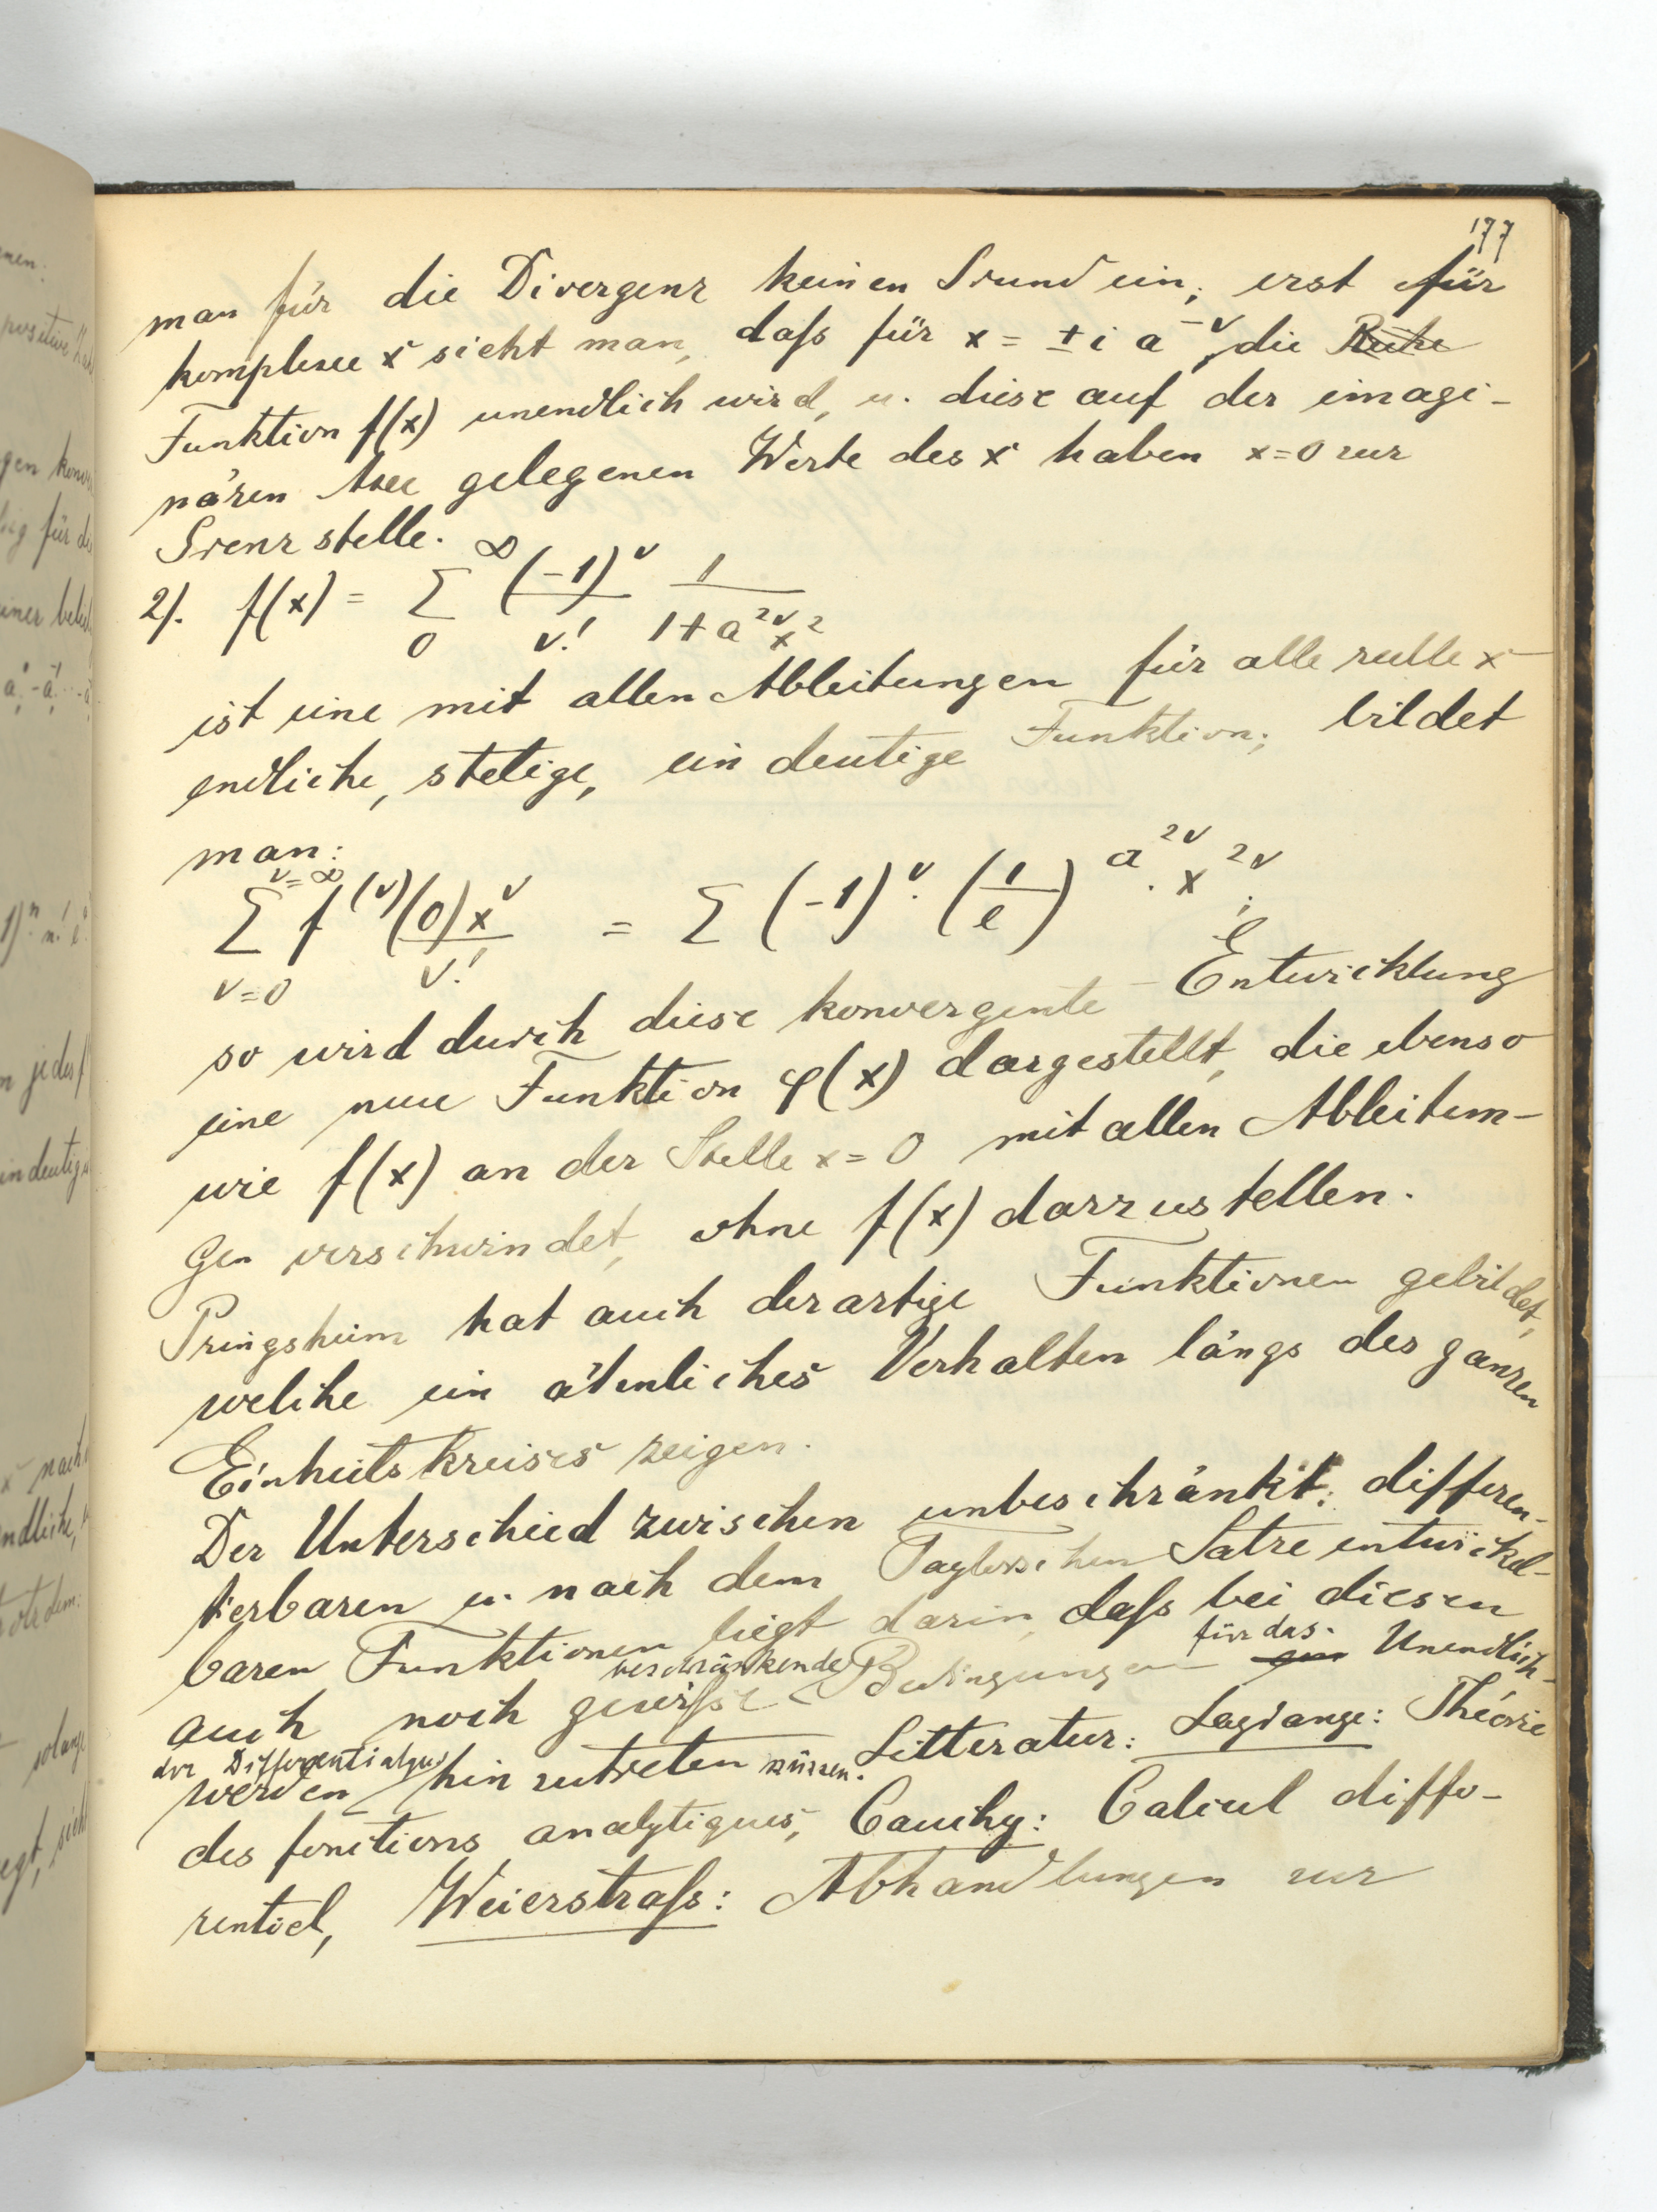 177
man für die Divergenz keinen Grund ein; erst für
komplexe x sieht man, daſs für x = ± i a^-ν, die ~~Reihe~~
Funktion f(x) unendlich wird, u. diese auf der imagi-
nären Axe gelegenen Werte des x haben x=0 zur
Grenzstelle.
2). f(x) = ∑_0^∞ (-1)^ν/ν! 1/(1+a^2ν x^2)
ist eine mit allen Ableitungen für alle reelle x
endliche, stetige, eindeutige Funktion; bildet
man:
∑_{ν=0}^{ν=∞} f^(ν)(0)x^ν/ν! = ∑ (-1)^ν. (1/e)^{a^2ν}. x^2ν;
so wird durch diese konvergente Entwicklung
eine neue Funktion φ(x) dargestellt, die ebenso
wie f(x) an der Stelle x=0 mit allen Ableitun-
gen verschwindet, ohne f(x) darzustellen.
Pringsheim hat auch derartige Funktionen gebildet,
welche ein ähnliches Verhalten längs des ganzen
Einheitskreises zeigen.
Der Unterschied zwischen unbeschränkt: differen-
tierbaren u. nach dem Taylorschen Satze entwickel-
baren Funktionen liegt darin, daſs bei diesen
auch noch gewiſse beschränkende Bedingungen für das Unendlich-
werden der Differentialqu hinzutreten müssen. Litteratur: Lagrange: Théorie
des fonctions analytiques, Cauchy: Calcul diffe-
rentiel, Weierstraſs: Abhandlungen zur